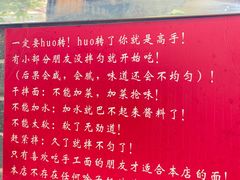 一定要huo转！huo转了你就是高手！
有小部分朋友没拌匀就开始吃！
（后果会咸，会腻，味道还会不均匀）！
干拌面：不能加菜，加菜抢味！
不能加水：加水就巴不起来酱料了！
不能太软：软了无劲道！
赶紧拌：久了就拌不匀了！
只有喜欢吃手工面的朋友才适合本店的面！
本店不存在任何